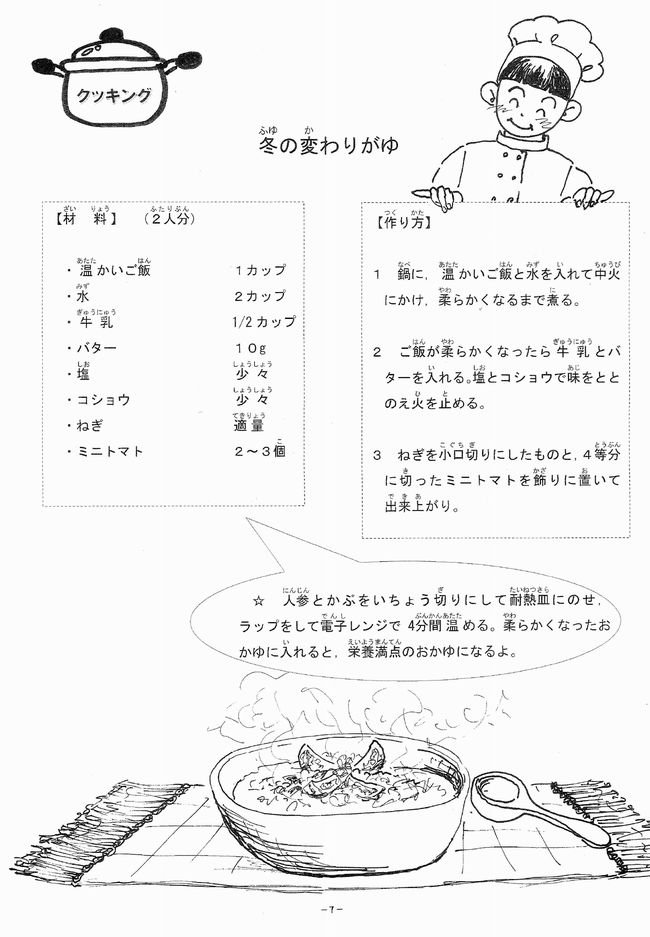 クッキング
冬の変わりがゆ
【材　料】　（２人分）
・温かいご飯　１カップ
・水　２カップ
・牛乳　1/2カップ
・バター　１０g
・塩　少々
・コショウ　少々
・ねぎ　適量
・ミニトマト　２～３個
【作り方】
１　鍋に，温かいご飯と水を入れて中火
にかけ，柔らかくなるまで煮る。
２　ご飯が柔らかくなったら牛乳とバ
ターを入れる。塩とコショウで味をとと
のえ火を止める。
３　ねぎを小口切りにしたものと，４等分
に切ったミニトマトを飾りに置いて
出来上がり。
☆　人参とかぶをいちょう切りにして耐熱皿にのせ，
ラップをして電子レンジで 4分間温める。柔らかくなったお
かゆに入れると，栄養満点のおかゆになるよ。
－7－